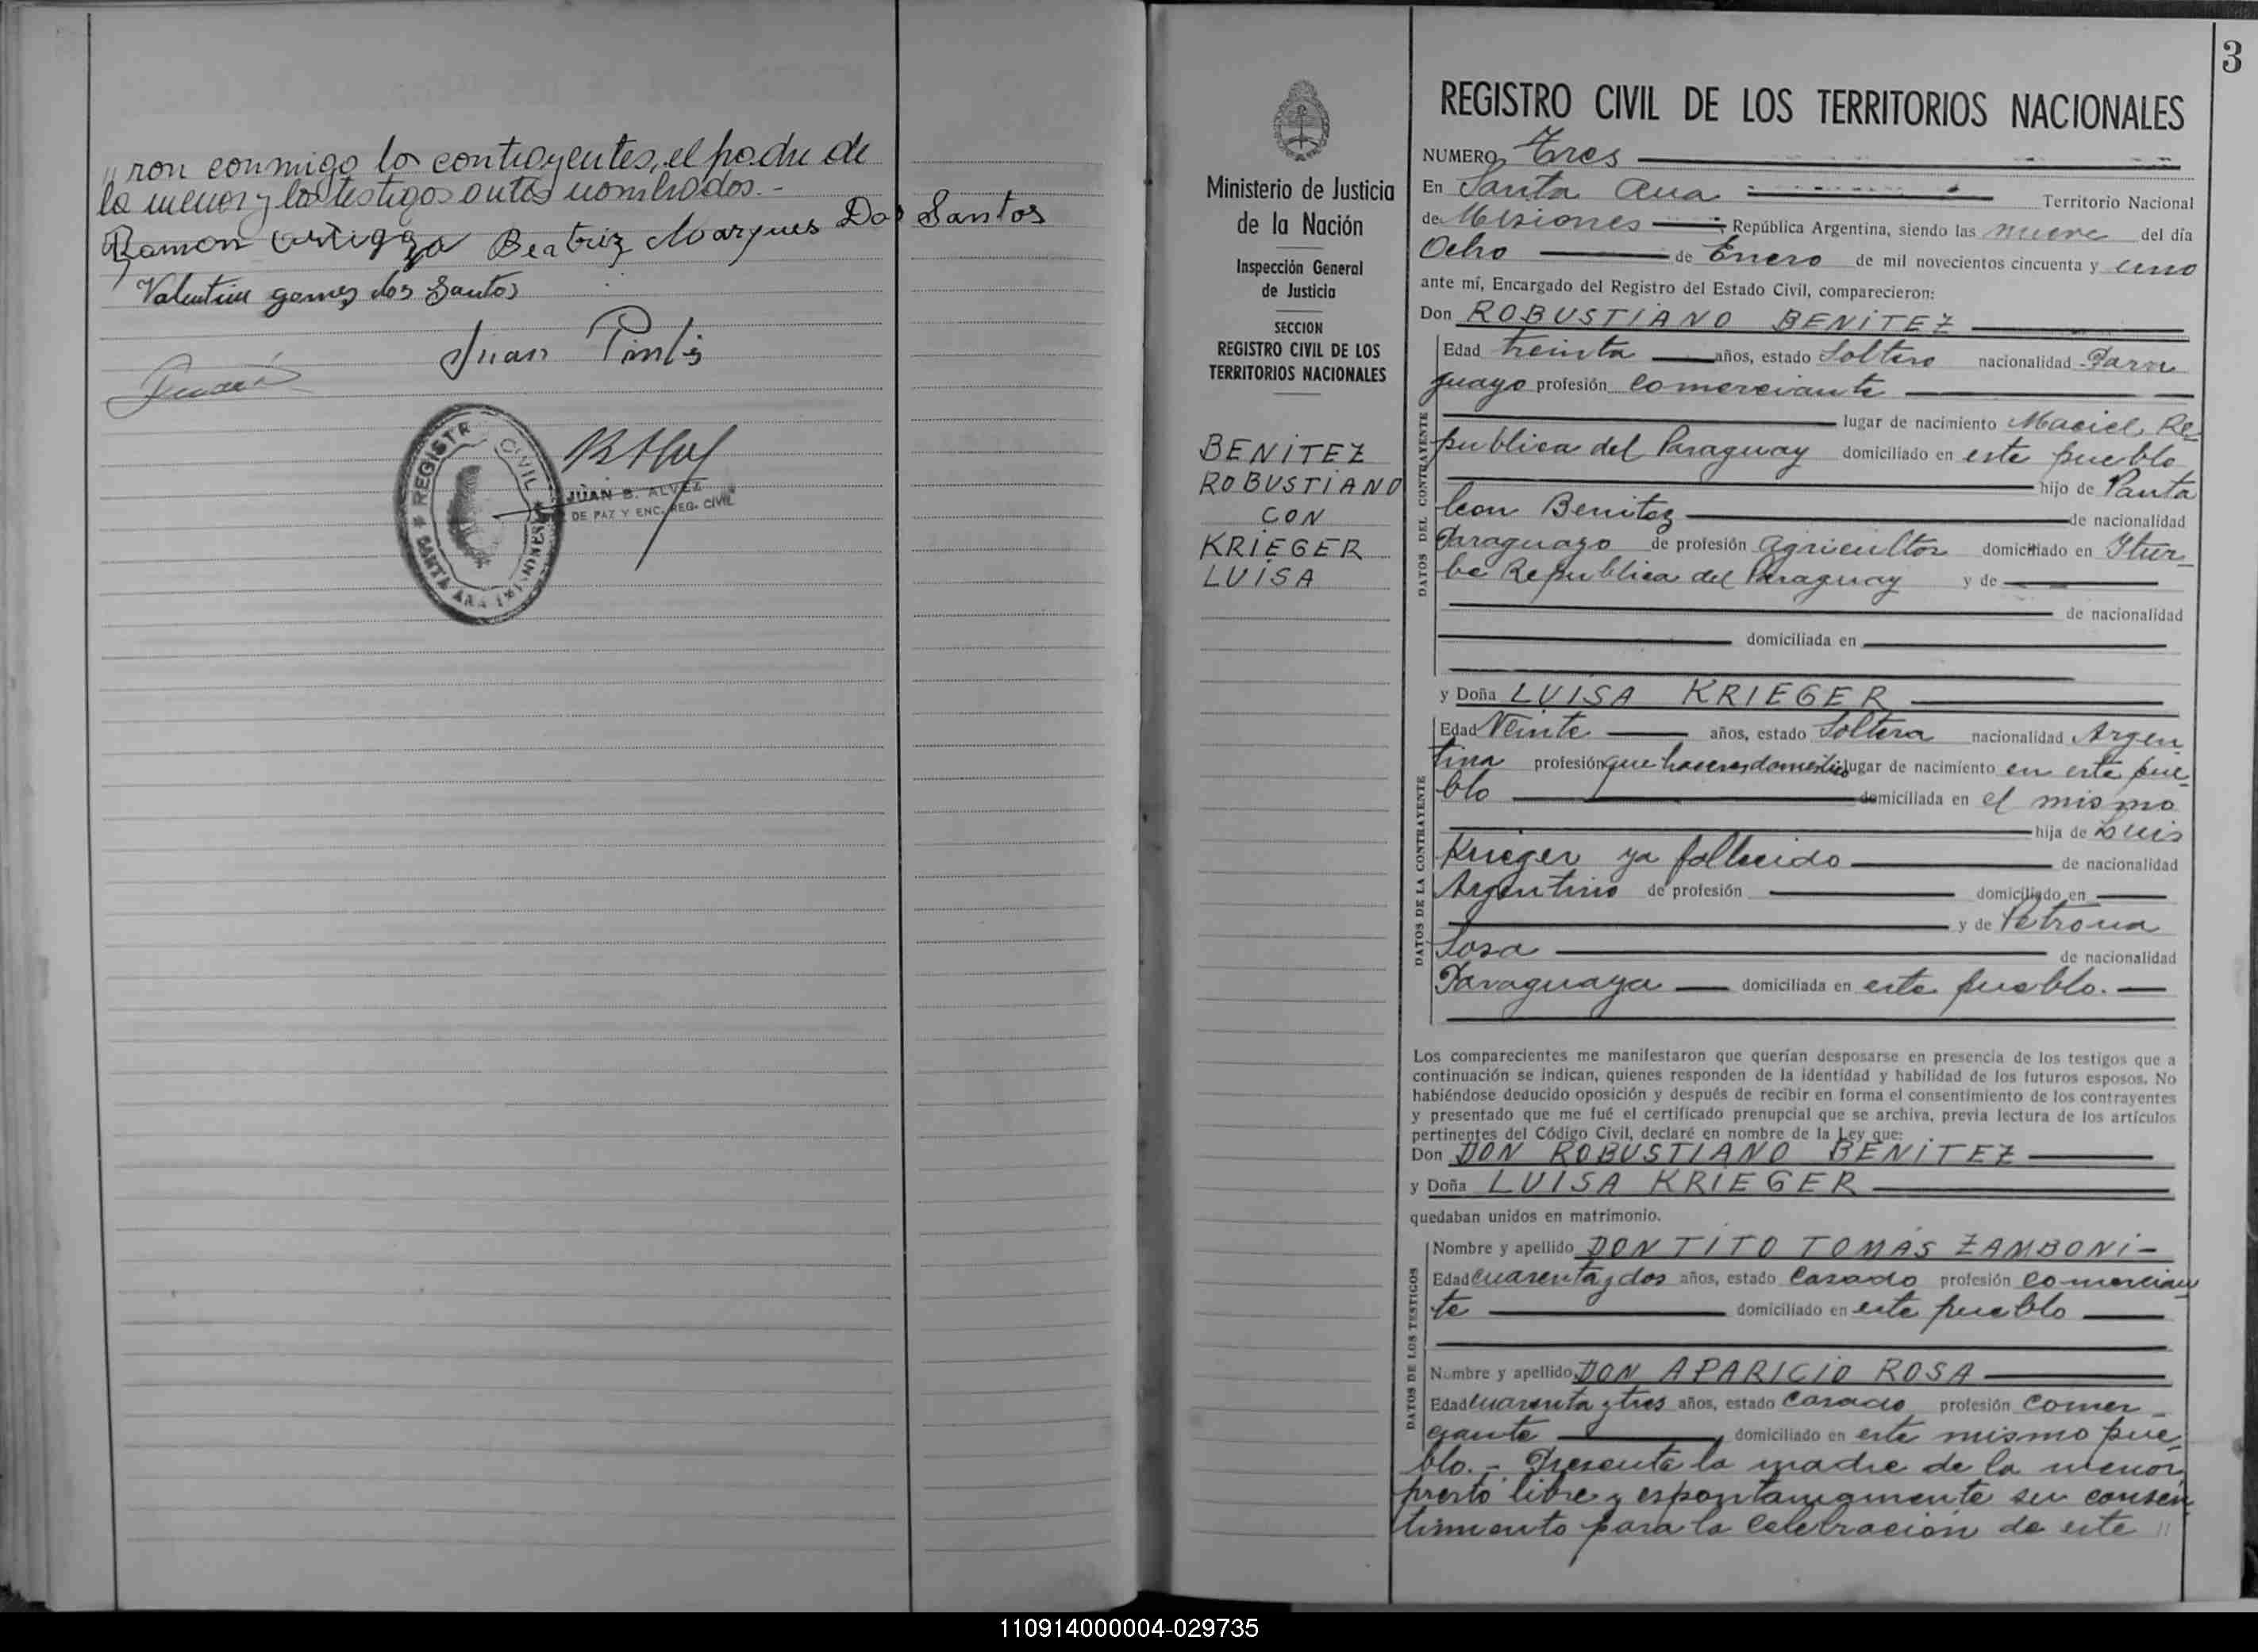 "ron conmigo los contrayentes, el padre de
la menor y los testigos antes nombrados.-
Ramon Beatriz Marques Dos Santos
Valentin gomes dos Santos
Juan
REGISTRO CIVIL
SANTA ANA (MISIONES)
JUAN B. ALVEZ
DE PAZ Y ENC. REG. CIVIL
Ministerio de Justicia
de la Nación
Inspección General
de Justicia
SECCION
REGISTRO CIVIL DE LOS
TERRITORIOS NACIONALES
BENITEZ
ROBUSTIANO
CON
KRIEGER
LUISA
3
REGISTRO CIVIL DE LOS TERRITORIOS NACIONALES
NUMERO Tres
En Santa Ana Territorio Nacional
de Misiones República Argentina, siendo las nueve del día
Ocho de Enero de mil novecientos cincuenta y uno
ante mí, Encargado del Registro del Estado Civil, comparecieron:
Don ROBUSTIANO BENITEZ
DATOS DEL CONTRAYENTE
Edad treinta años, estado Soltero nacionalidad Para
guayo profesión comerciante
lugar de nacimiento Maciel, Re-
publica del Paraguay domiciliado en este pueblo
hijo de Panta
leon Benitez de nacionalidad
Paraguayo de profesión agricultor domiciliado en Itur-
be Republica del Paraguay y de
de nacionalidad
domiciliada en
y Doña LUISA KRIEGER
DATOS DE LA CONTRAYENTE
Edad Veinte años, estado Soltera nacionalidad Argen-
tina profesión que haceres domésticos lugar de nacimiento en este pue-
blo domiciliada en el mismo
hija de Luis
Krieger ya fallecido de nacionalidad
Argentino de profesión domiciliado en
y de Petrona
Sosa de nacionalidad
Paraguaya domiciliada en este pueblo.
Los comparecientes me manifestaron que querían desposarse en presencia de los testigos que a
continuación se indican, quienes responden de la identidad y habilidad de los futuros esposos. No
habiéndose deducido oposición y después de recibir en forma el consentimiento de los contrayentes
y presentado que me fué el certificado prenupcial que se archiva, previa lectura de los artículos
pertinentes del Código Civil, declaré en nombre de la Ley que:
Don DON ROBUSTIANO BENITEZ
y Doña LUISA KRIEGER
quedaban unidos en matrimonio.
DATOS DE LOS TESTIGOS
Nombre y apellido DON TITO TOMAS ZAMBONI-
Edad cuarenta y dos años, estado Casado profesión comercian
te domiciliado en este pueblo
Nombre y apellido DON APARICIO ROSA
Edad cuarenta y tres años, estado Casado profesión comer-
ciante domiciliado en este mismo pue-
blo.- Presente la madre de la menor
presto libre y espontaneamente su consen
timiento para la celebración de este "
110914000004-029735